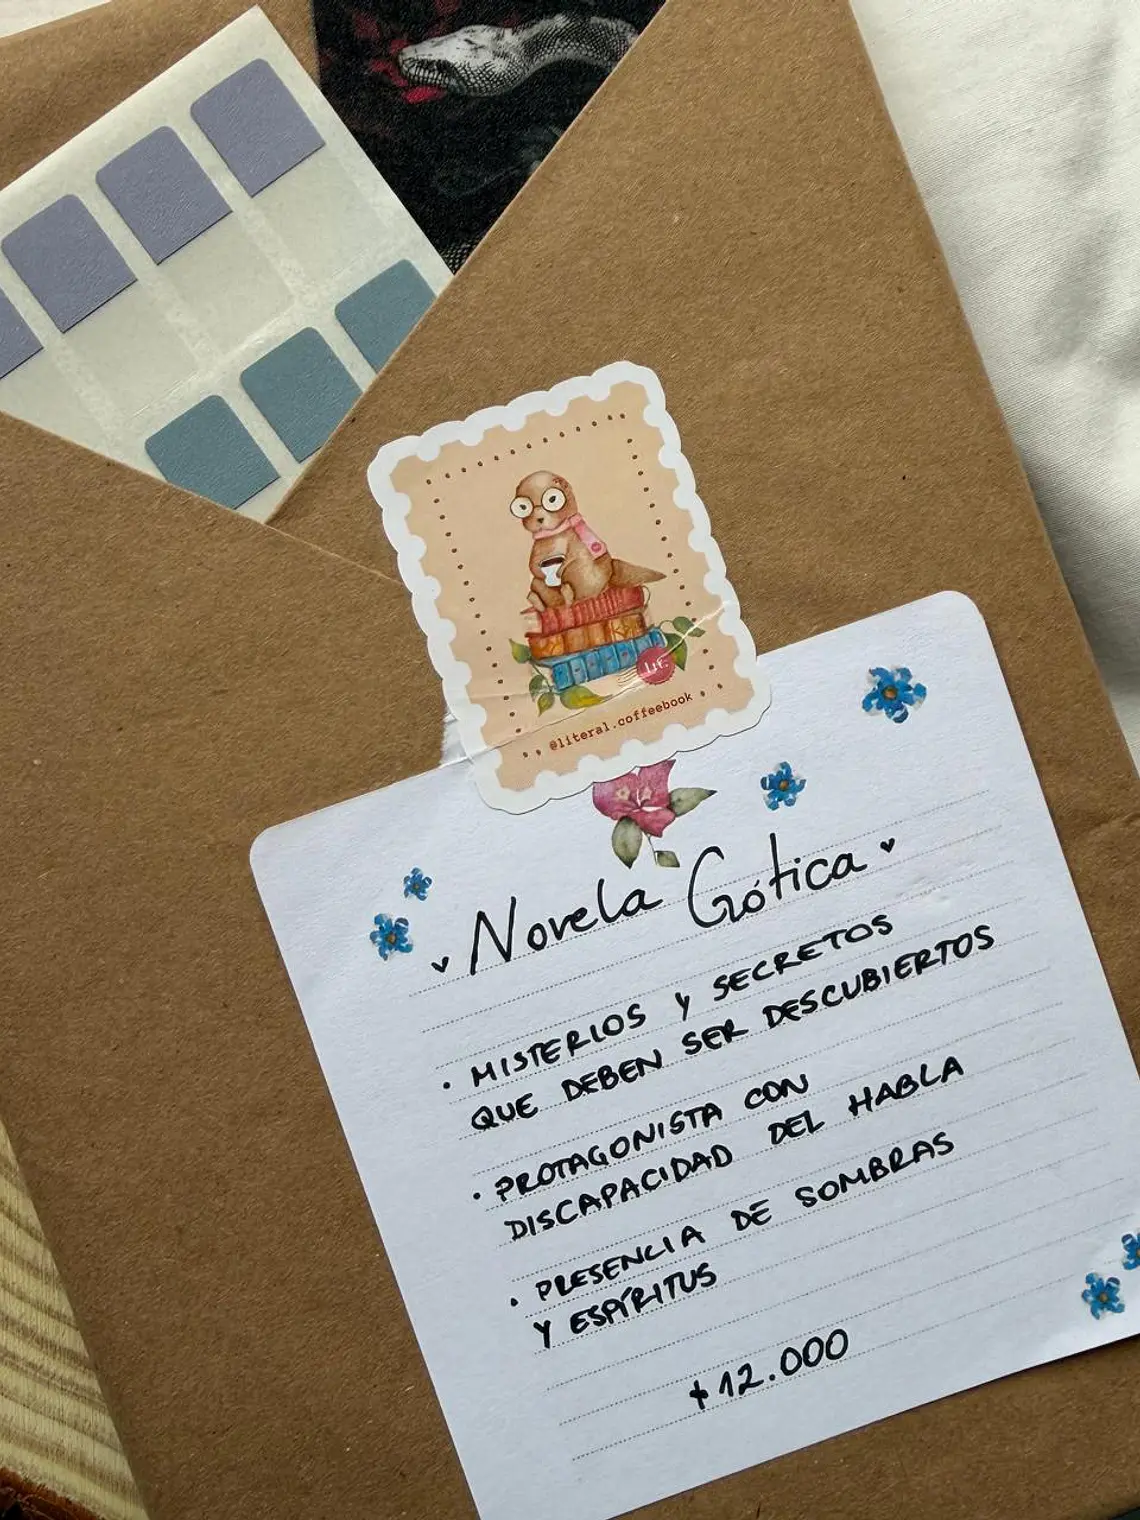 Lit.
@literal.coffeebook
Novela Gótica
• MISTERIOS Y SECRETOS
QUE DEBEN SER DESCUBIERTOS
• PROTAGONISTA CON
DISCAPACIDAD DEL HABLA
• PRESENCIA DE SOMBRAS
Y ESPÍRITUS
+12.000